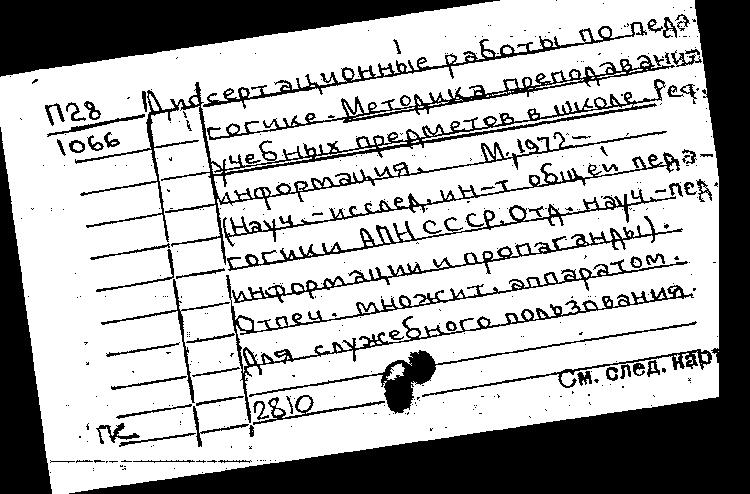 П28 Диссертационные работы по педа-
1066 гогике. Методика преподавания
учебных предметов в школе. Реф.
информация. М., 1972-
(Науч.-исслед. ин-т общей педа-
гогики АПН СССР. Отд. науч.-пед.
информации и пропаганды).
Отпеч. множит. аппаратом.
Для служебного пользования.
См. след. карт
2810
ПК